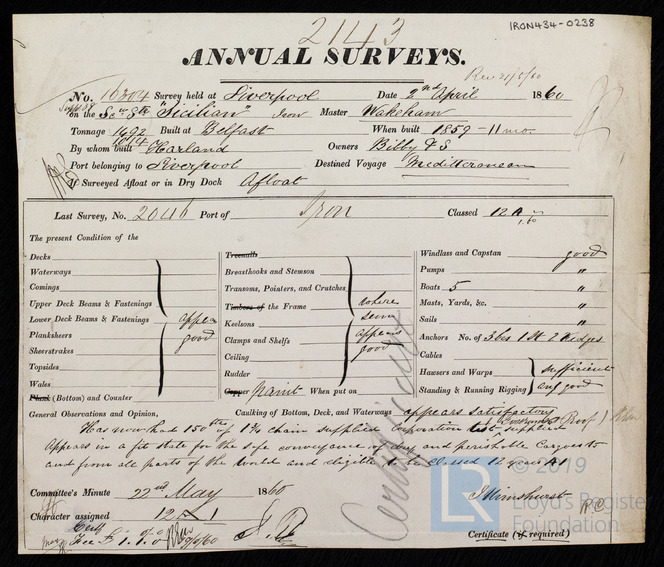 IRON434-0238
2143
ANNUAL SURVEYS.
No. 16304 Survey held at Liverpool Date 2nd April 1860
on the Scw Str "Sicilian Iron Master Wakeham
Tonnage 1492 Built at Belfast When built 1859 - 11 mo.
By whom built Harland Owners Bibby & S
Port belonging to Liverpool Destined Voyage Mediterranean
If Surveyed Afloat or in Dry Dock Afloat
Last Survey, No. 2046 Port of Iron Classed 12 A
The present Condition of the
Decks
Waterways
Comings
Upper Deck Beams & Fastenings
Lower Deck Beams & Fastenings appear
Planksheers good
Sheerstrakes
Topsides
Wales
Plank (Bottom) and Counter
Treenails
Breasthooks and Stemson
Transoms, Pointers, and Crutches
Timbers of the Frame where
Keelsons seen
Clamps and Shelfs appears
Ceiling good
Rudder
Copper paint When put on
Windlass and Capstan good
Pumps "
Boats 5 "
Masts, Yards, &c. "
Sails "
Anchors No. of 3 brs 1 St 2 Kedges
Cables
Hawsers and Warps sufficient
Standing & Running Rigging and good
General Observations and Opinion, Caulking of Bottom, Deck, and Waterways appears satisfactory
Has now had 150 fth of 1 3/4 chain supplied Corporation supplied
Appears in a fit state for the safe conveyance of dry and perishable Cargoes to
and from all parts of the World and eligible to be classed 12 years A1
Certificate
© 2019
Committee's Minute 22nd May 1860
LR Lloyd's Register
Foundation
Character assigned 12 A 1
Fee £1.1.0
Certificate (if required)